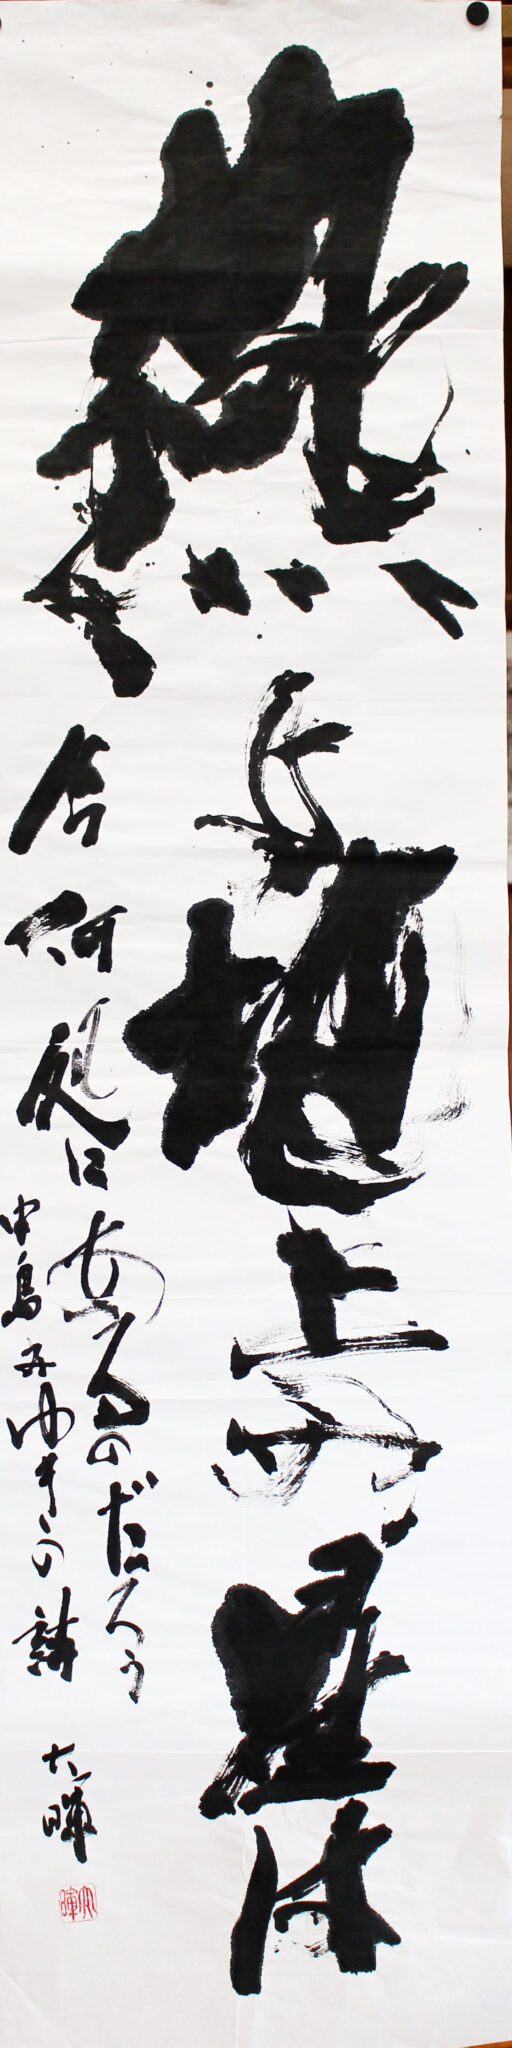 燕よ地上の星は
今何処にあるのだろう
中島みゆきの詩 大暉